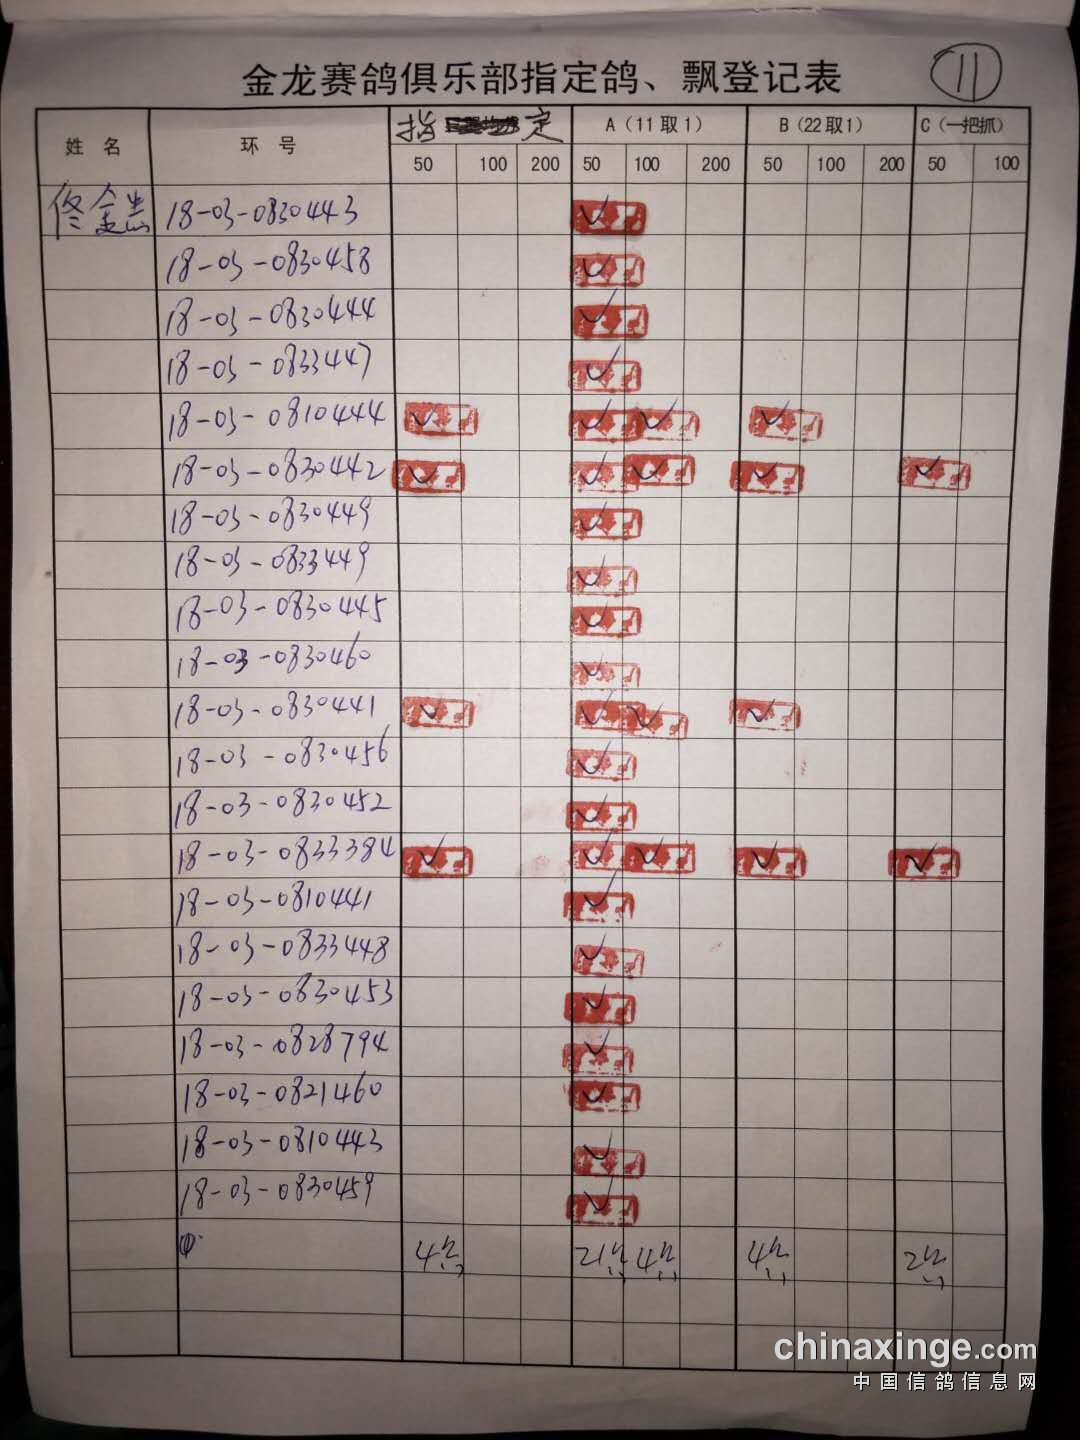 金龙赛鸽俱乐部指定鸽、飘登记表 11
姓 名 环 号 指 定 A(11取1) B(22取1) C(一把抓)
50 100 200 50 100 200 50 100 200 50 100
佟金 18-03-0830443 ✓
18-03-0830458 ✓
18-03-0830444 ✓
18-03-0833447 ✓
18-03-0810444 ✓ ✓ ✓ ✓
18-03-0830442 ✓ ✓ ✓ ✓ ✓
18-03-0830449 ✓
18-03-0833449 ✓
18-03-0830445 ✓
18-03-0830460 ✓
18-03-0830441 ✓ ✓ ✓ ✓
18-03-0830456 ✓
18-03-0830452 ✓
18-03-0833384 ✓ ✓ ✓ ✓ ✓
18-03-0810441 ✓
18-03-0833448 ✓
18-03-0830453 ✓
18-03-0828794 ✓
18-03-0821460 ✓
18-03-0810443 ✓
18-03-0830459 ✓
4 21 4 4 2
chinaxinge.com
中国信鸽信息网